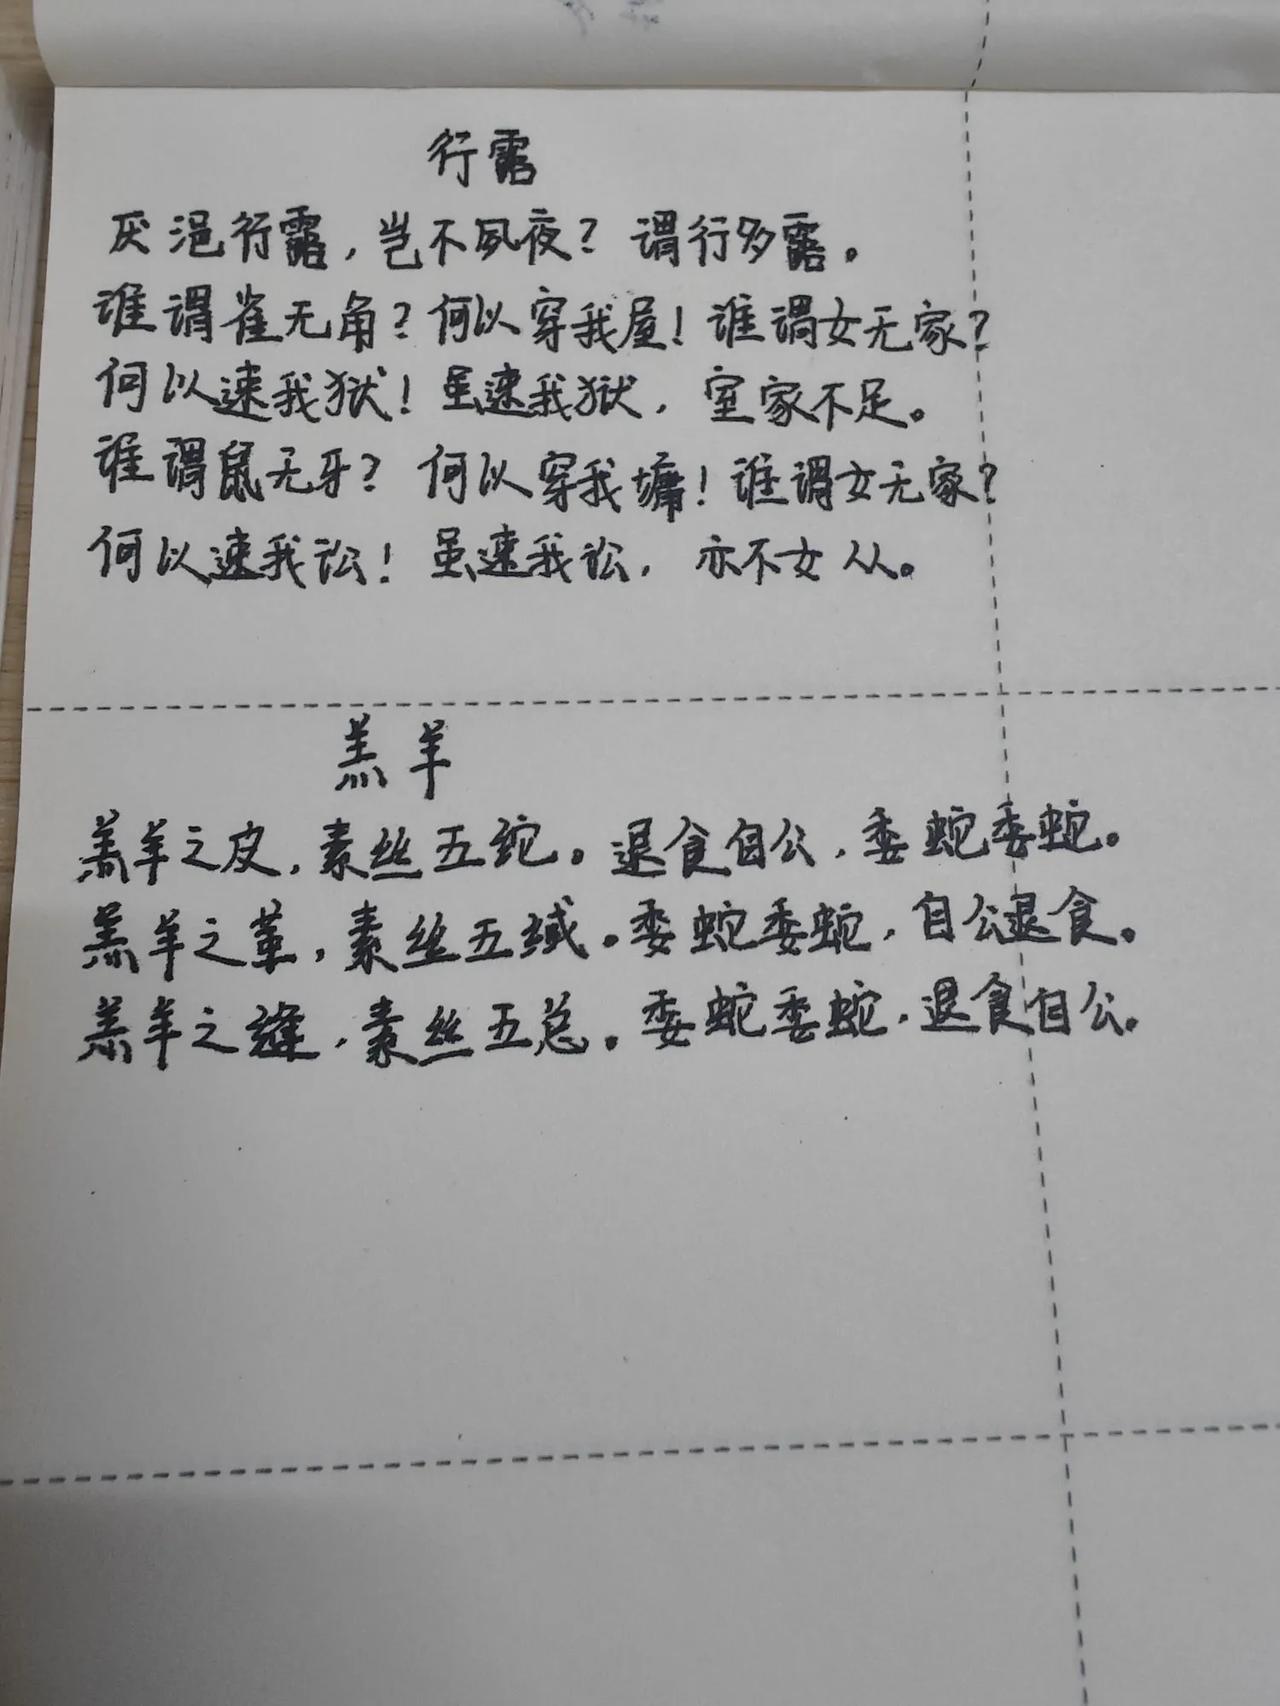 行露
厌浥行露，岂不夙夜？谓行多露。
谁谓雀无角？何以穿我屋！谁谓女无家？
何以速我狱！虽速我狱，室家不足。
谁谓鼠无牙？何以穿我墉！谁谓女无家？
何以速我讼！虽速我讼，亦不女从。
羔羊
羔羊之皮，素丝五紽。退食自公，委蛇委蛇。
羔羊之革，素丝五緎。委蛇委蛇，自公退食。
羔羊之缝，素丝五总。委蛇委蛇，退食自公。